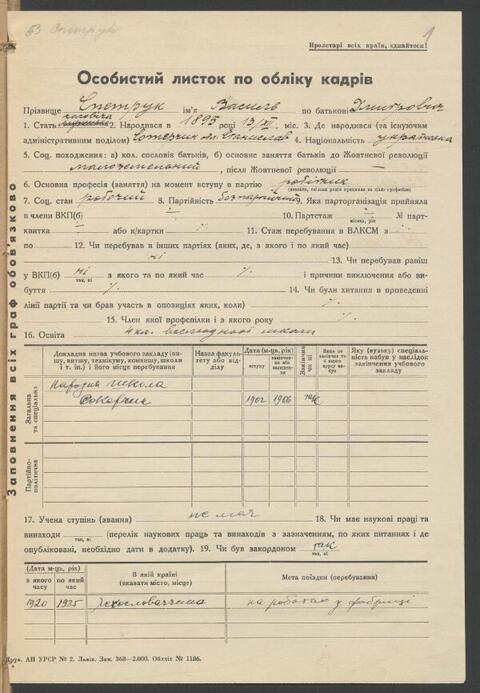 Пролетарі всіх країн, єднайтеся!
1
Особистий листок по обліку кадрів
Прізвище Спетрук ім'я Василь по батькові Дмитрович
1. Стать чоловіча 2. Народився в 1895 році 13/XII міс. 3. Де народився (та існуючим
адміністративним поділом) Станіслав 4. Національність українка
5. Соц. походження: а) кол. сословія батьків, б) основне заняття батьків до Жовтневої революції
малоземельний, після Жовтневої революції —
6. Основна професія (заняття) на момент вступу в партію робітник
7. Соц. стан робочий 8. Партійність безпартійний 9. Яка парторганізація прийняла
в члени ВКП(б) 10. Партстаж № парт-
квитка або к/картки 11. Стаж перебування в ВЛКСМ з
по 12. Чи перебував в інших партіях (яких, де, з якого і по який час)
ні 13. Чи перебував раніш
у ВКП(б) ні з якого та по який час і причини виключення або ви-
так, ні
буття 14. Чи були хитання в проведенні
лінії партії та чи брав участь в опозиціях яких, коли)
15. Член якої профспілки і з якого року
16. Освіта 4 кл. школи
Заповнення всіх граф обов'язково
Докладна назва учбового закладу (ви-
шу, витву, технікуму, комвишу, школи
і т. ін.) і його місце перебування
Назва факуль-
тету або від-
ділу
Дата (м-ць, рік)
вступу
Закінчив
чи ні
Яку (вузьку) спеціаль-
ність набув у наслідок
закінчення учбового
закладу
Загальна
та спеціальна
народна школа
1902 1906 так
Партійно-
політична
17. Учена ступінь (звання) не має 18. Чи має наукові праці та
винаходи (перелік наукових праць та винаходів з зазначенням, по яких питаннях і де
так, ні
опубліковані, необхідно дати в додатку). 19. Чи був закордоном так
так, ні
(Дата м-ць, рік)
з якого
часу
по який
час
В якій країні
(вказати місто, місце)
Мета поїздки (перебування)
1920 1925 Чехословаччина на роботах у фабриці
Друк. АН УРСР № 2. Львів. Зам. 368—2.000. Обллiт № 1186.